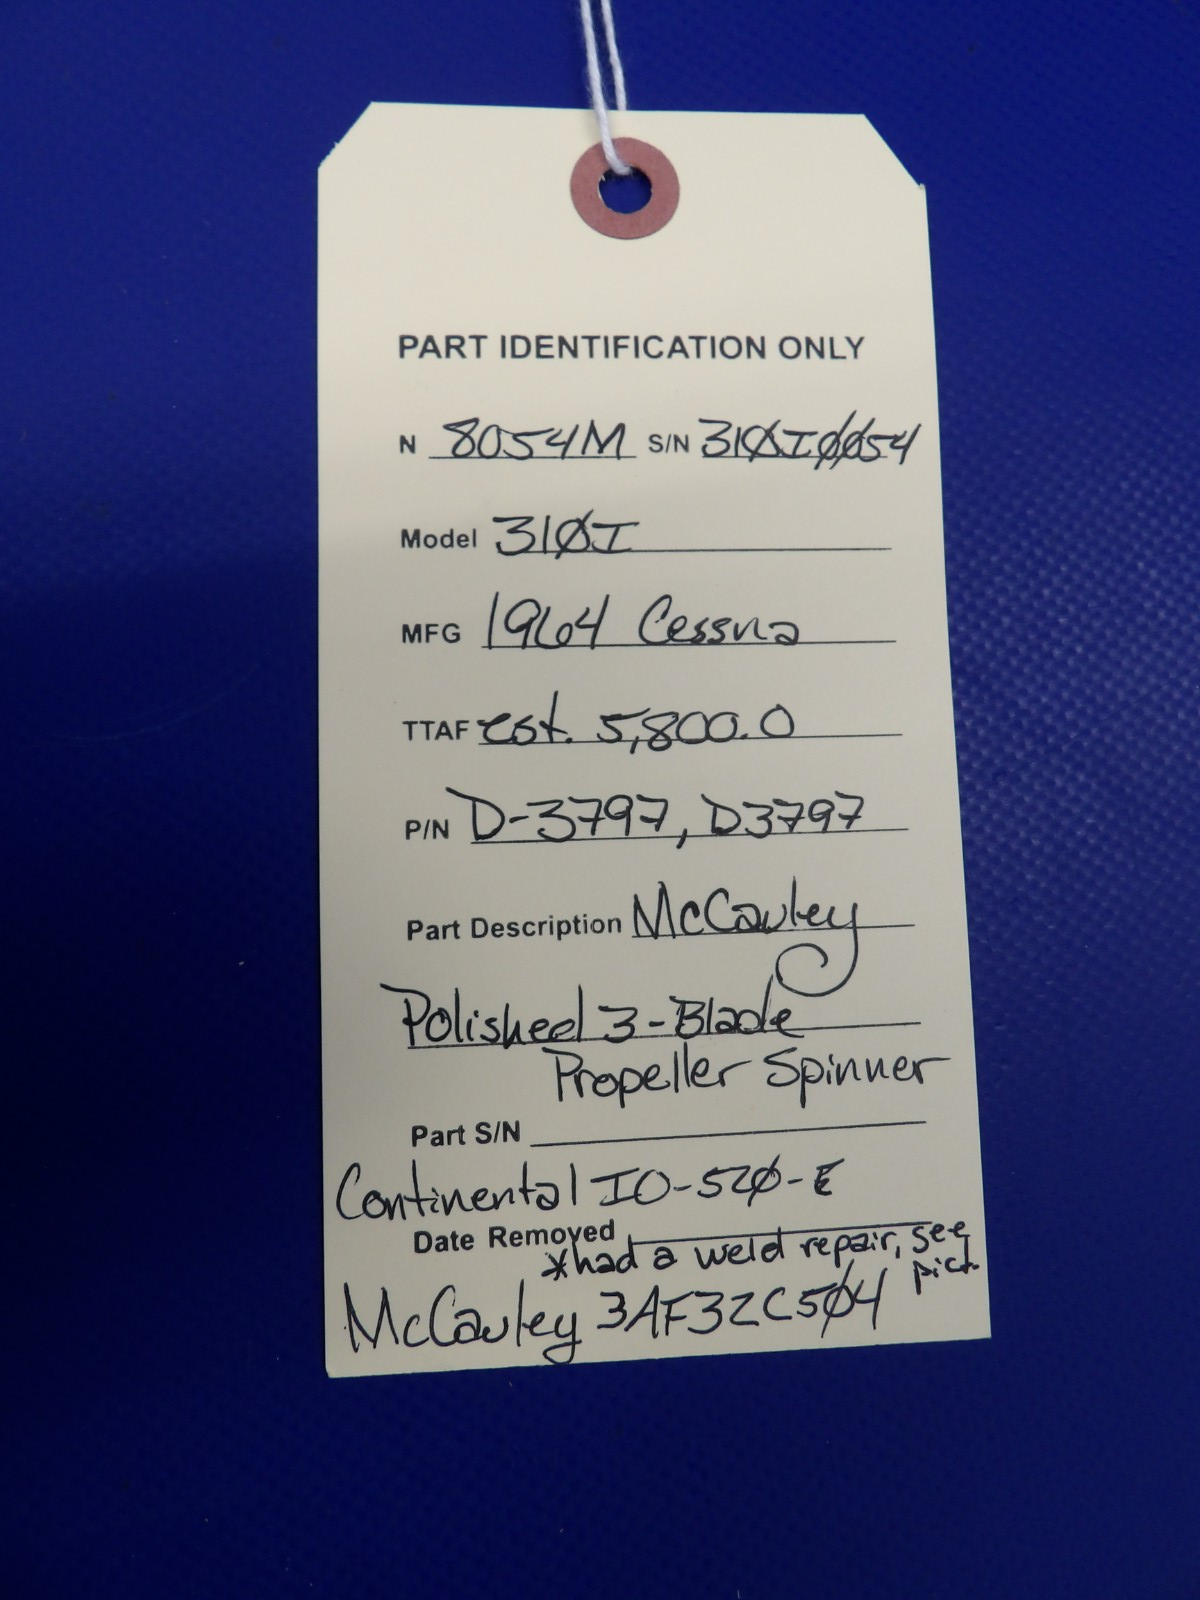 PART IDENTIFICATION ONLY
N 8054M S/N 310I0054
Model 310I
MFG 1964 Cessna
TTAF est. 5,800.0
P/N D-3797, D3797
Part Description McCauley
Polished 3-Blade
Propeller Spinner
Part S/N
Continental IO-520-E
Date Removed
*had a weld repair, see
pict.
McCauley 3AF32C504